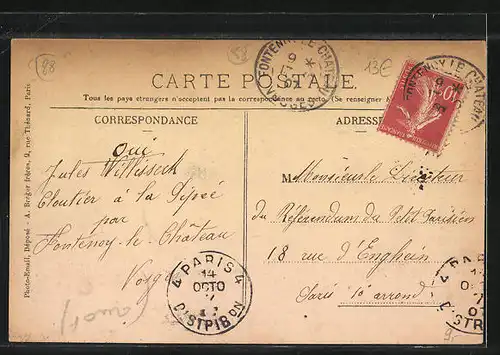 88
58
13€
FONTENOY LE CHATEAU
VOSGES
CARTE POSTALE
Tous les pays étrangers n'acceptent pas la correspondance au recto. (Se renseigner
CORRESPONDANCE
ADRESSE
Oui
Jules
Cloutier à la Pipée
par
Fontenoy-le-Château
Vosges
M Monsieur le Directeur
du Référendum du Petit Parisien
18 rue d'Enghein
Paris 10e arrond
4 PARIS 4
14
OCTO
DISTRIBON
Photo-Email, Déposé - A. Berger frères, 9, rue Thénard, Paris
10